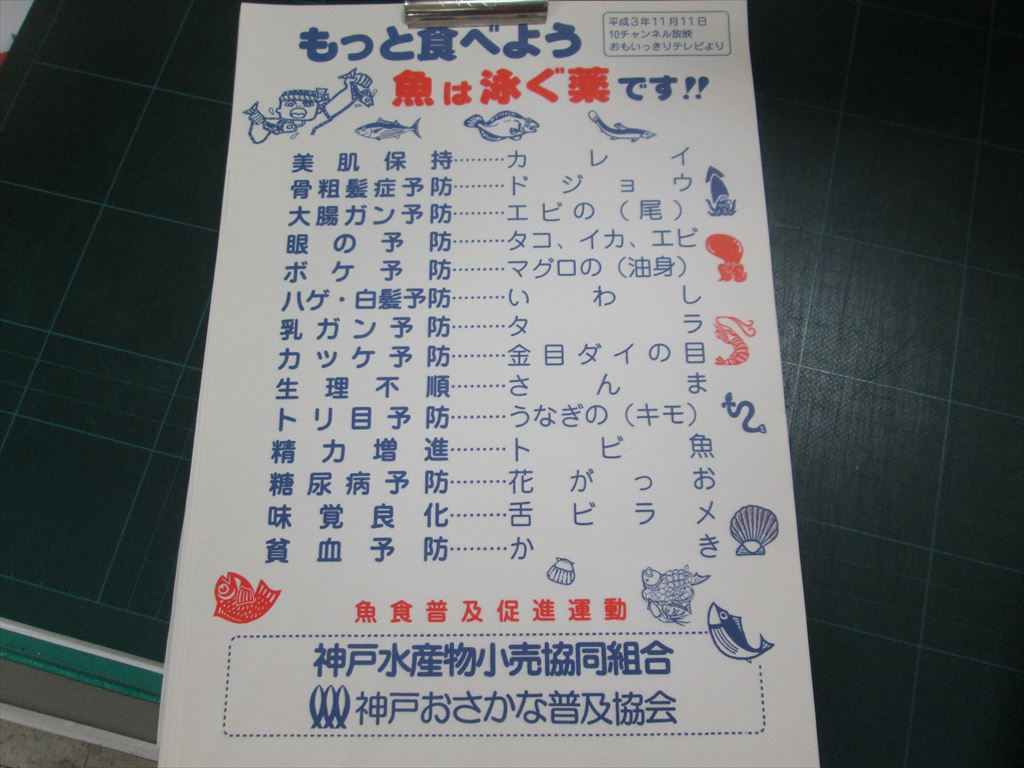 もっと食べよう
平成3年11月11日
10チャンネル放映
おもいっきりテレビより
魚は泳ぐ薬です!!
美肌保持………カレイ
骨粗髪症予防………ドジョウ
大腸ガン予防………エビの(尾)
眼の予防………タコ、イカ、エビ
ボケ予防………マグロの(油身)
ハゲ・白髪予防………いわし
乳ガン予防………タラ
カツケ予防………金目ダイの目
生理不順………さんま
トリ目予防………うなぎの(キモ)
精力増進………トビ魚
糖尿病予防………花がっお
味覚良化………舌ビラメ
貧血予防………かき
魚食普及促進運動
神戸水産物小売協同組合
神戸おさかな普及協会